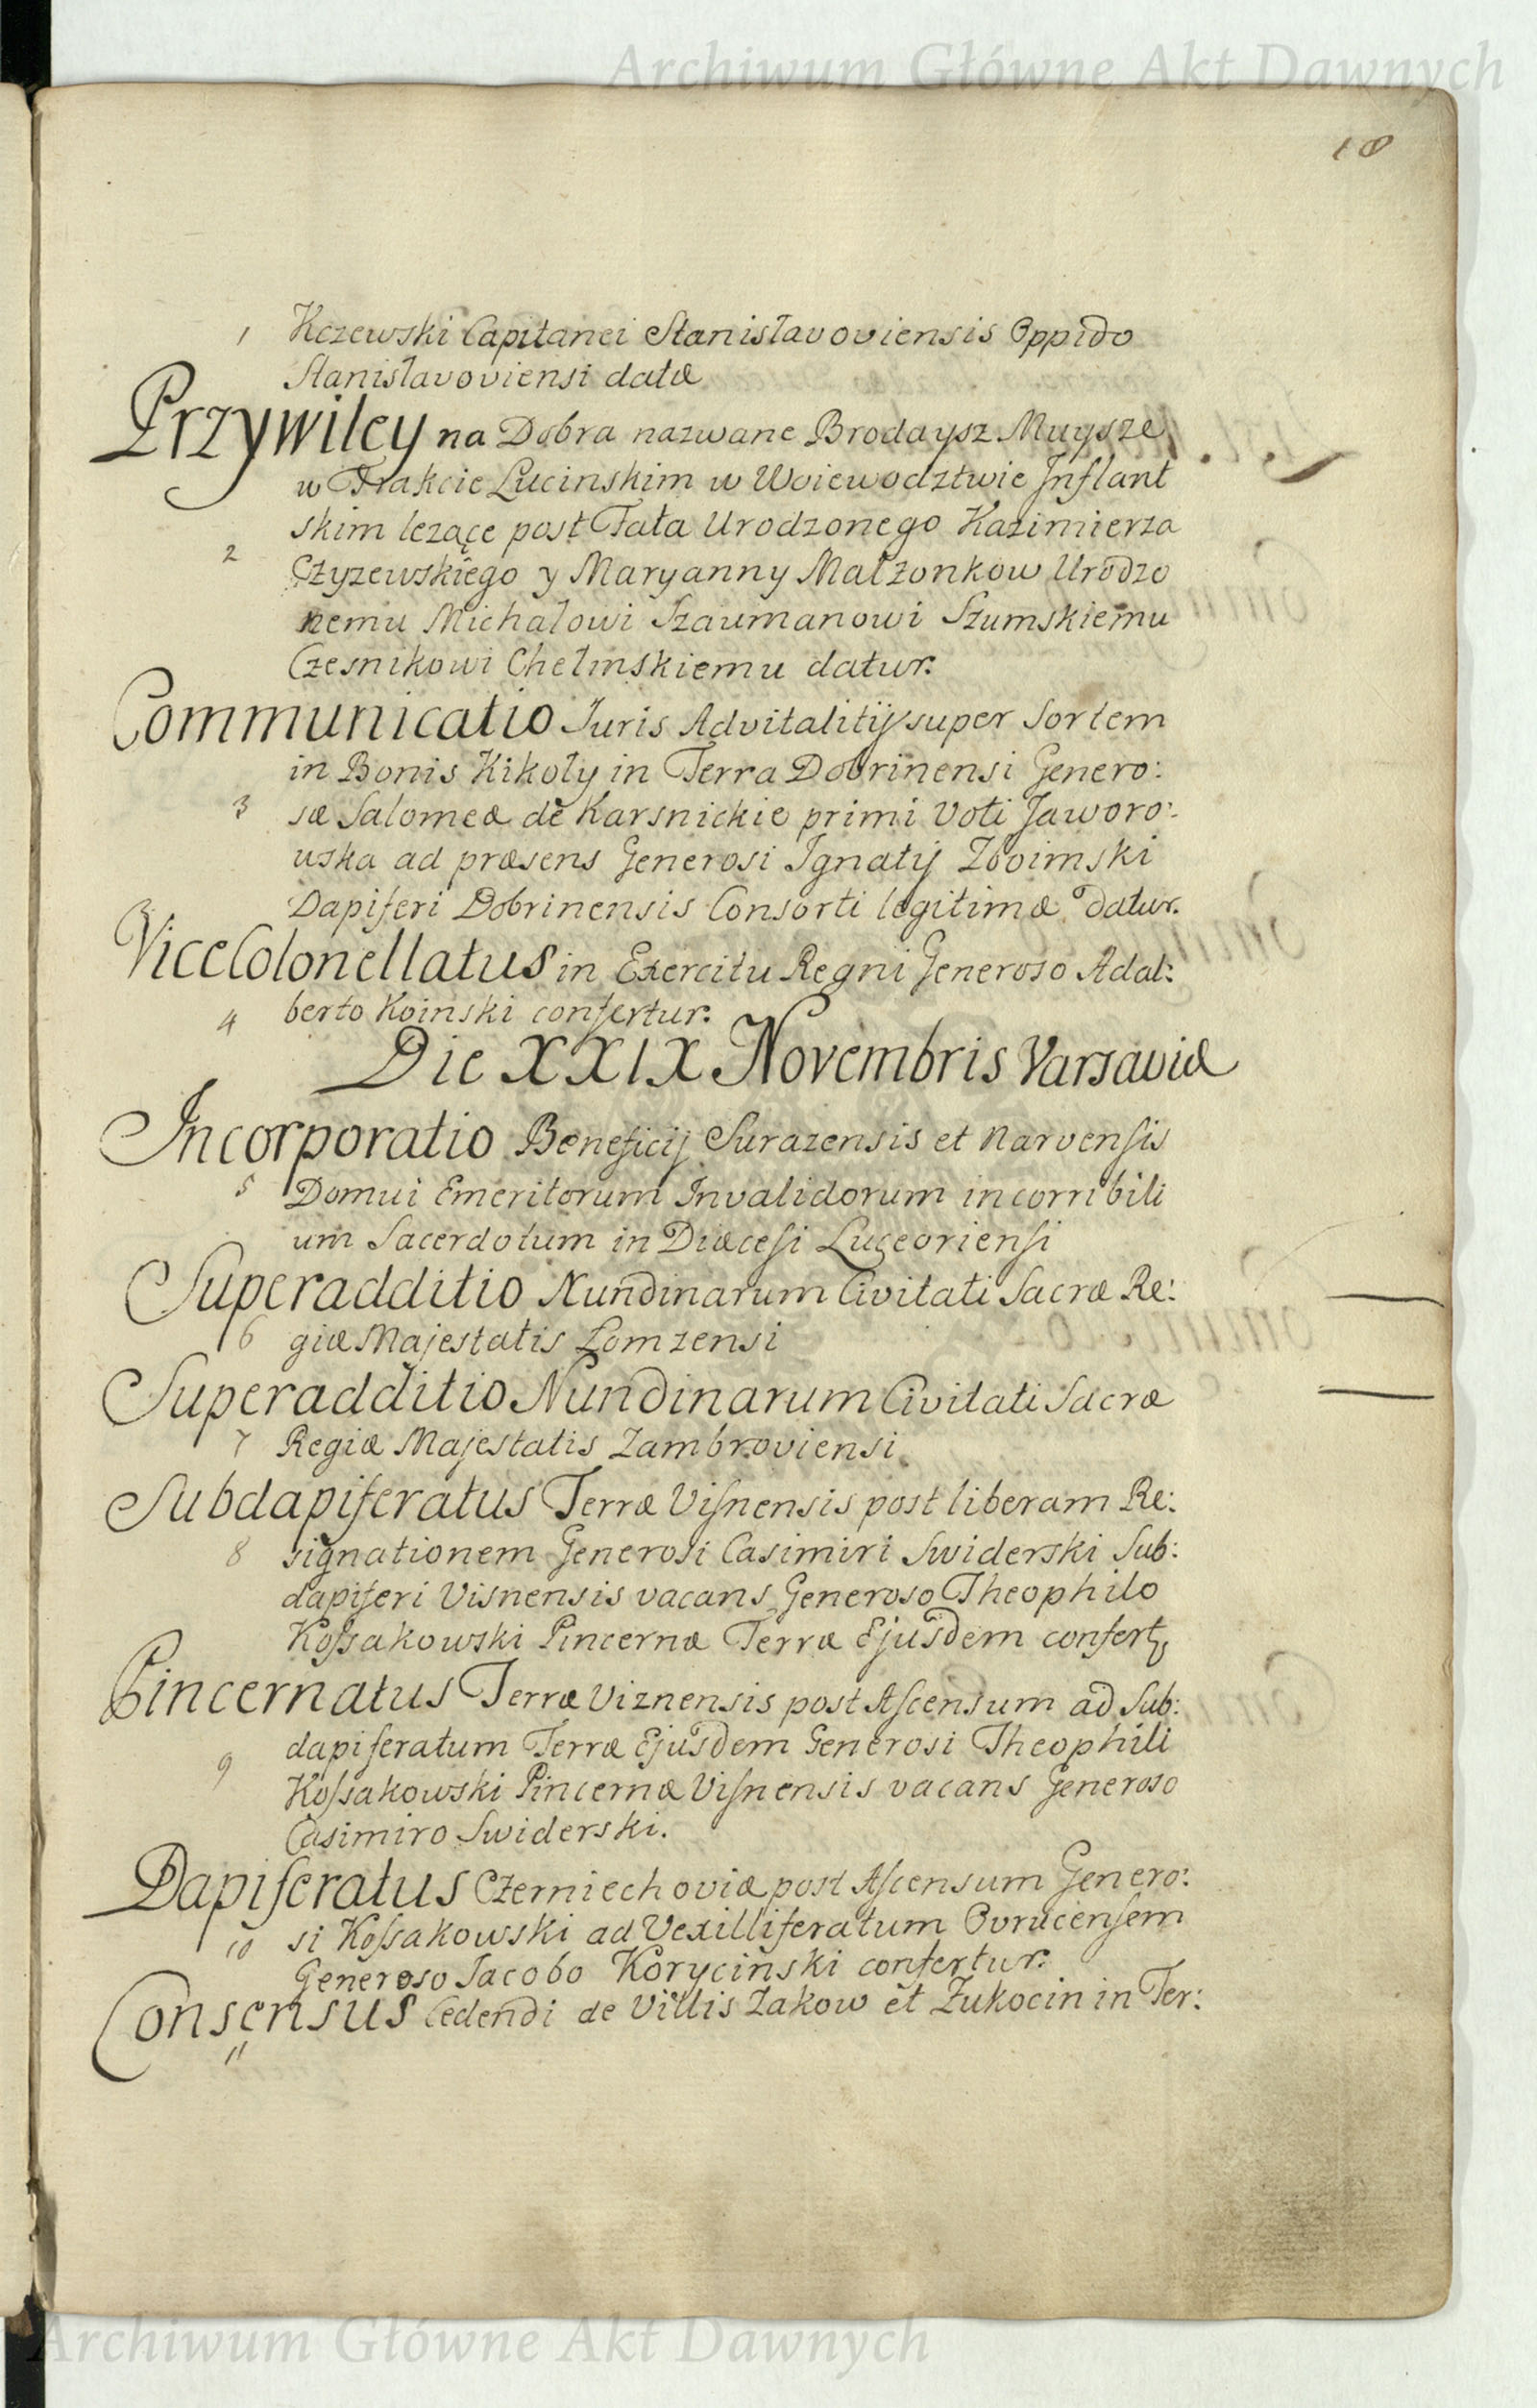 Archiwum Główne Akt Dawnych
18
1 Kczewski Capitanei Stanisławoviensis Oppido
Stanisławoviensi datæ
Przywiley na Dobra nazwane Brodaysz Muysze
w Trakcie Lucinskim w Woiewodztwie Inflant
skim lezące post Fata Urodzonego Kazimierza
2 Czyzewskiego y Maryanny Małzonkow Urodzo
nemu Michałowi Szaumanowi Szumskiemu
Czesnikowi Chełmskiemu datur.
Communicatio Juris Advitalitij super Sortem
in Bonis Kikoły in Terra Dobrinensi Genero:
3 sæ Salomeæ de Karsnickie primi Voti Jaworo:
wska ad præsens Generosi Ignatij Zboimski
Dapiferi Dobrinensis Consorti legitimæ datur.
ViceColonellatus in Exercitu Regni Generoso Adal:
4 berto Koinski confertur.
Die XXIX Novembris Varsaviæ
Incorporatio Beneficij Surazensis et Narvensis
5 Domui Emeritorum Invalidorum incorribili
um Sacerdotum in Diæcesi Luceoriensi
Superadditio Nundinarum Civitati Sacræ Re:
6 giæ Majestatis Lomzensi
Superadditio Nundinarum Civitati Sacræ
7 Regiæ Majestatis Zambroviensi.
Subdapiferatus Terræ Visnensis post liberam Re:
8 signationem Generosi Casimiri Swiderski Sub:
dapiferi Visnensis vacans Generoso Theophilo
Kossakowski Pincernæ Terræ Ejusdem confertꝫ
Pincernatus Terræ Viznensis post Ascensum ad Sub:
dapiferatum Terræ Ejusdem Generosi Theophili
9 Kossakowski Pincernæ Visnensis vacans Generoso
Casimiro Swiderski.
Dapiferatus Czerniechoviæ post Ascensum Genero:
10 si Kossakowski ad Vexilliferatum Ovrucensem
Generoso Jacobo Koryciński confertur.
Consensus Cedendi de Villis Zakow et Zukocin in Ter:
11
Archiwum Główne Akt Dawnych